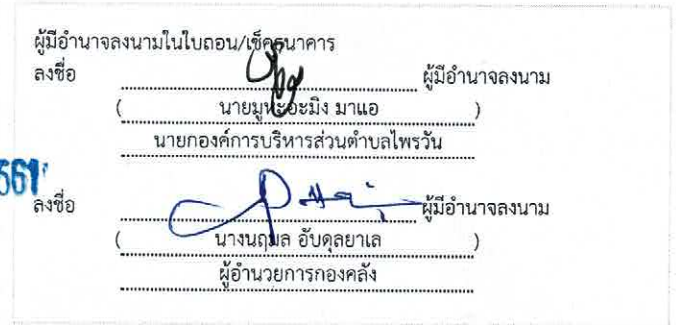 ผู้มีอำนาจลงนามในใบถอน/เช็คธนาคาร
ลงชื่อ ผู้มีอำนาจลงนาม
( นายมูหะอะมิง มาแอ )
นายกองค์การบริหารส่วนตำบลไพรวัน
561
ลงชื่อ ผู้มีอำนาจลงนาม
( นางนฤมล อับดุลยาเล )
ผู้อำนวยการกองคลัง